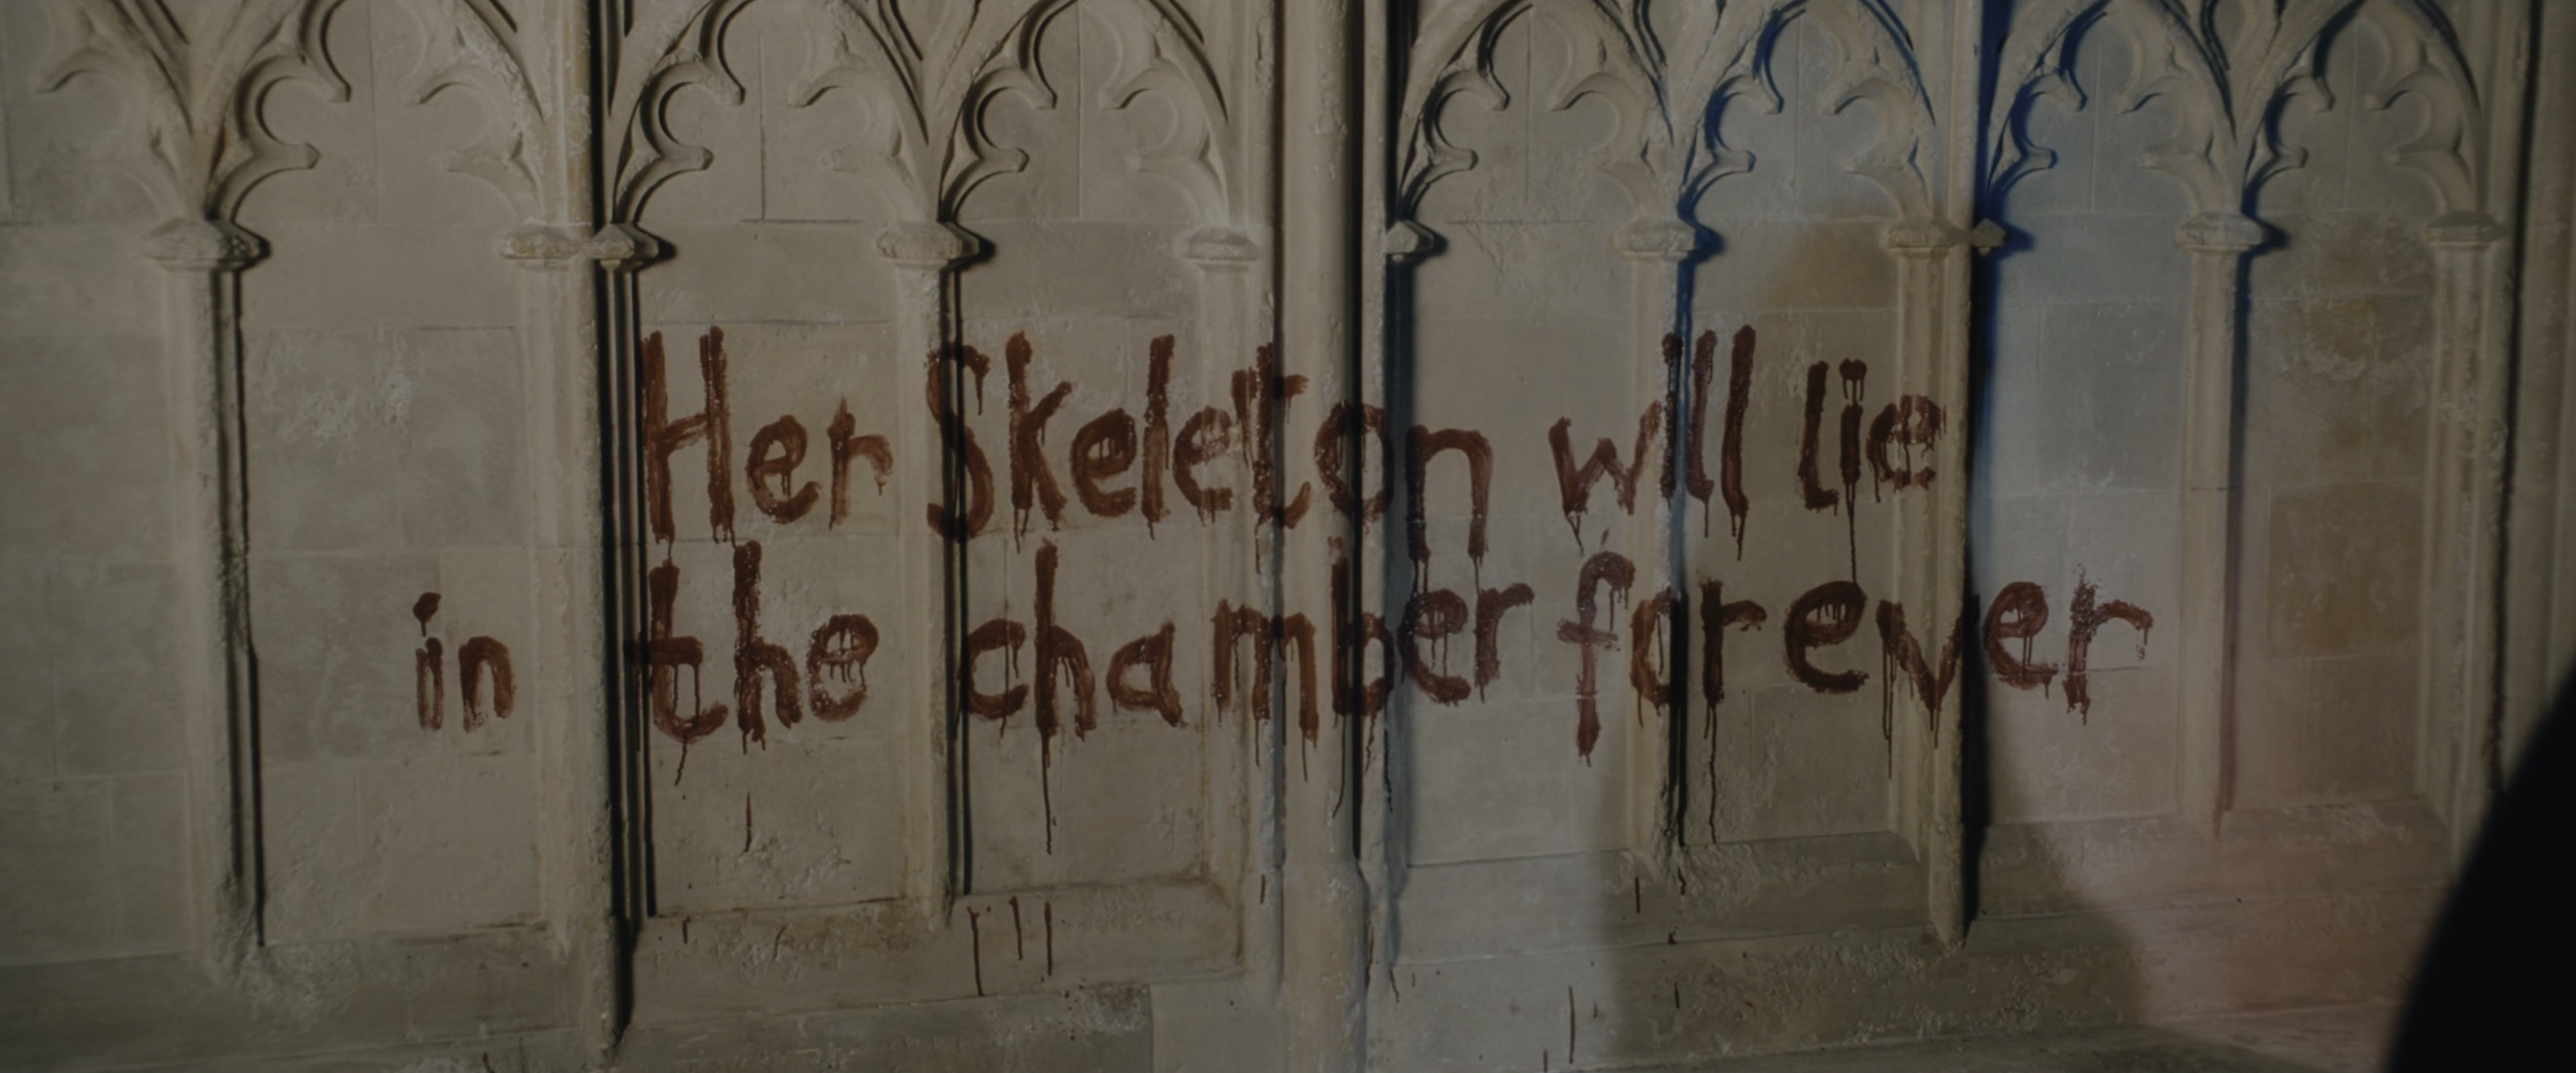 Her Skeleton will lie
in the chamber forever